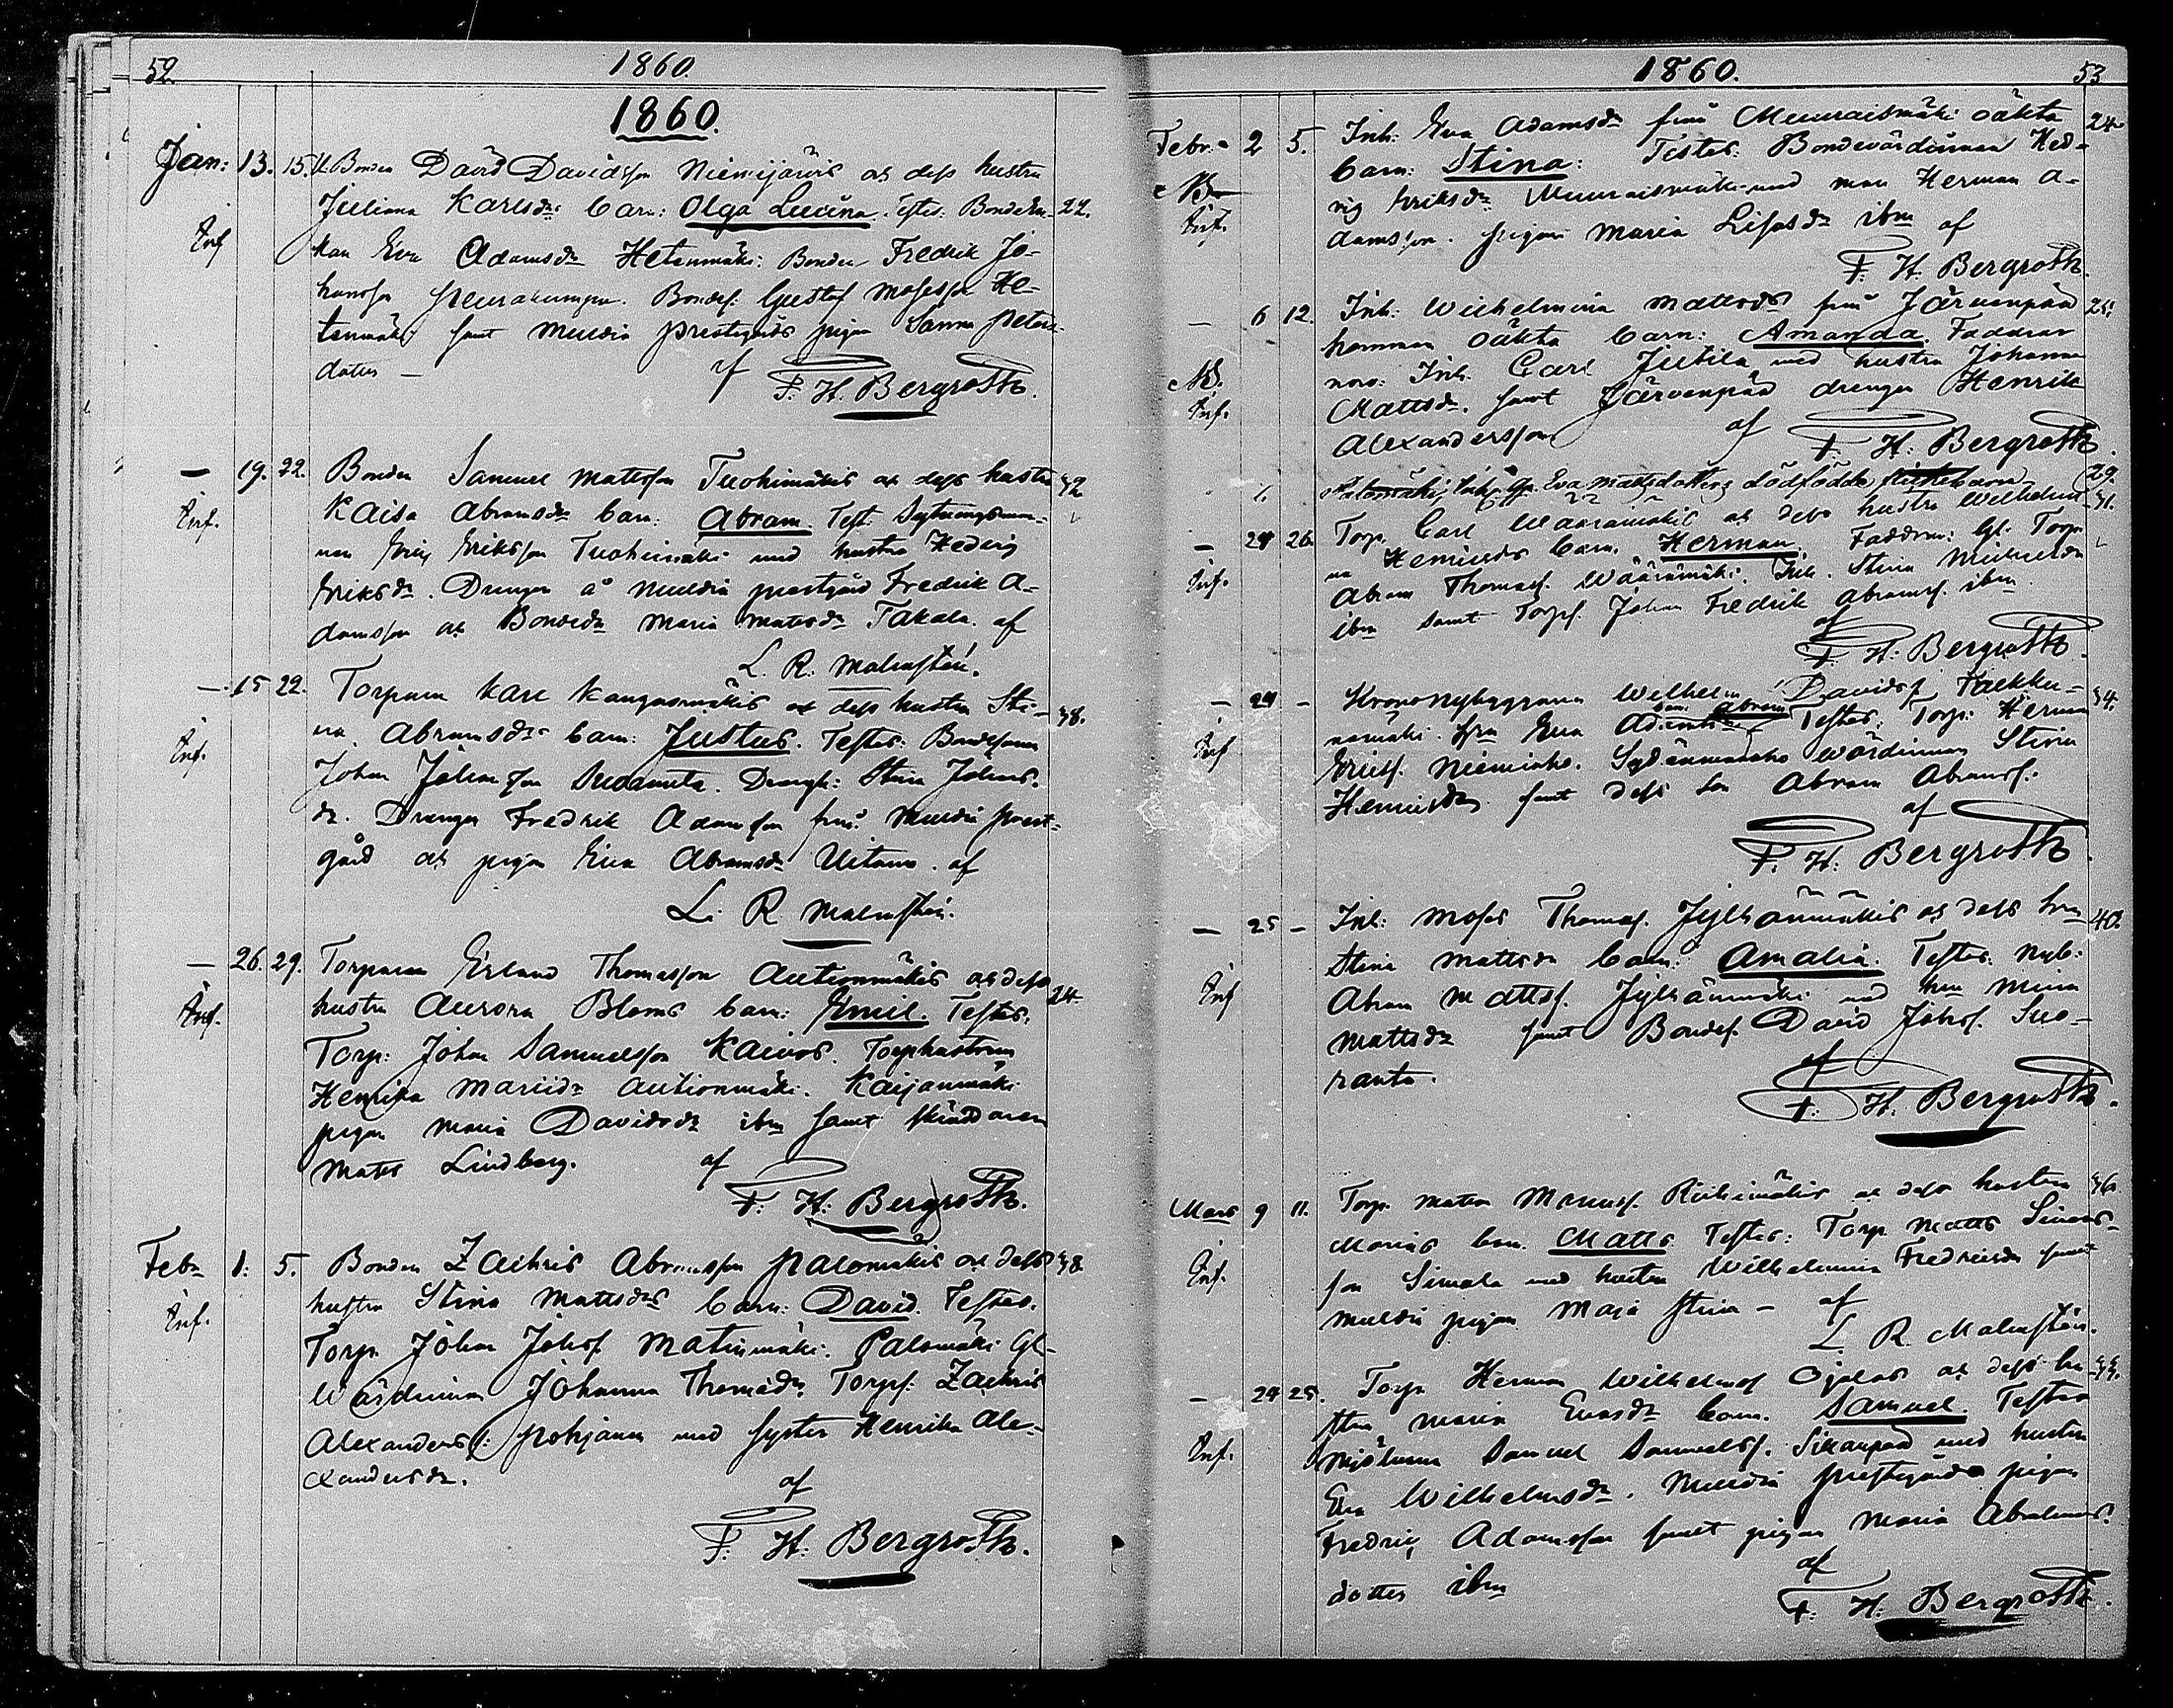 52. 1860.
1860.
Jan: 13. 15. U. Bonden David Davidsson Niemijärvis ock dess hustru
Juliana Karlsdrs barn: Olga Lucina. Testes: Bondeen- 22.
Inf kan Eva Adamsdr Hetenmäki: Bonden Fredrik Jo-
hansson Peurakumpu. Bondes. Gustaf Mosesson He-
tenmäki samt Muldia prestgårds pigan Sanna Peters-
dotter — af F. H. Bergroth.
— 19. 22. Bonden Samuel Mattsson Tuohimäkis ock dess hustru 32
Inf. Kaisa Abramsdrs barn: Abram. Test: Sytningsman-
nen Eriksson Tuohimäki med hustru Hedvig
Eriksdr. Drengen å Muldia prestgård Fredrik A-
damsson ock Bondedr Maria Mattsdr Takala. af
L. R. Malmstén.
— 15 22. Torparen Karl Kangasmäkis ock dess hustru Sti- 38.
Inf. na Abramsdrs barn: Justus. Testes: Bondsonen
Johan Johansson Drengh: Stina Johans-
dr. Drengen Fredrik Adamsson från Muldia prest-
gård ock pigan Eva Abramsdr af
L. R. Malmstén.
— 26. 29. Torparen Erland Thomasson Autionmäkis ock dess
hustru Aurora Bloms barn: Emil. Testes. 24.
Inf. Torp: Johan Samuelsson Kaivos. Torphustrun
Henrika Mariidr Autionmäki. Kaijanmäki
pigan Maria Davidsdr ibm samt skräddaren
Matts Lindberg. af
F. H. Bergroth.
Febr 1: 5. Bonden Zachris Abramsson Palomäkis ock dess 38
Inf. hustru Stina Mattsdrs barn: David. Testes.
Torp. Johan Johss Matinmäki. Palomäki Gl-
Wärdinnan Johanna Thomædr. Torps: Zachris
Alexanders: Pohjanen med syster Henrika Ale-
xandersdr.
af
F. H. Bergroth.
1860. 53
Febr. 2 5. Inh: Eva Adamsdr från Muuraismäki oäkta 24
NB barn: Stina: Testes: Bondevärdinnan Hed-
Inf. vig Eriksdr Muuraismäki med man Herman A-
damsson. pigan Maria ibm af
F. H. Bergroth.
— 6 12. Inh: Wilhelmina Mattsdr från Järvenpää 25.
hemman oäkta barn: Amanda. Faddrar
NB. voro: Inh. Carl Jutila med hustru Johanna
Inf. Mattsdr. samt Järvenpää drengen Henrik
Alexandersson af
F. H. Bergroth.
Palomäki Inh. Eva Mattsdotters dödfödda flickebarn 29.
— 24 26. Torp. Carl Wäärämäkis ock dess hustru Wilhelmi- 31.
Inf. na Henricsdrs barn. Herman. Faddrar: Gl. Torp.
Abram Thomass. Wäärämäki. Inh. Stina Michelsdr
ibm samt Torps. Johan Fredrik Abramss. ibm
af
F. H. Bergroth.
— 24 — Krononybyggaren Wilhelm Davids. 34.
Inf nomäki. hru Eva barn Abram Testes: Torp: Herman
Erikss. Niemiaho. Sydänmaaho wärdinnan Stina
Henricsdr samt dess son Abram Abramss.
af
F. H. Bergroth.
— 25 — Inh: Moses Thomass. Jylhänmäkis ock dess hru 40.
Inf Stina Mattsdrs barn: Amalia. Testes. Nyb:
Abram Mattss. Jylhänmäki med hru Mina
Mattsdr samt Bondes. David Johss. Suo-
ranta. af
F. H. Bergroth.
Mars 9 11. Torp. Matts Riihimäkis ock dess hustru 36
Inf. Marias barn. Matts. Testes: Torp. Matts Simons-
son Simola med hustru Wilhelmina Fredriksdr samt
Muldia pigan Maja Stina — af
L. R. Malmstén.
— 24 25. Torp. Herman Wilhelmss Ojalas ock dess hu- 33.
Inf. stru Maria Evasdrs barn. Samuel. Testes
Mjölnaren Samuel Samuelss. med hustru
Eva Wilhelmsdr. Muldia prestgårds pigan
Fredric Adamsson samt pigan Maria Abrahams-
dotter ibm af
F. H. Bergroth.